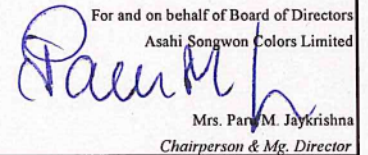 For and on behalf of Board of Directors
Asahi Songwon Colors Limited
Paru M
Mrs. Paru M. Jaykrishna
Chairperson & Mg. Director